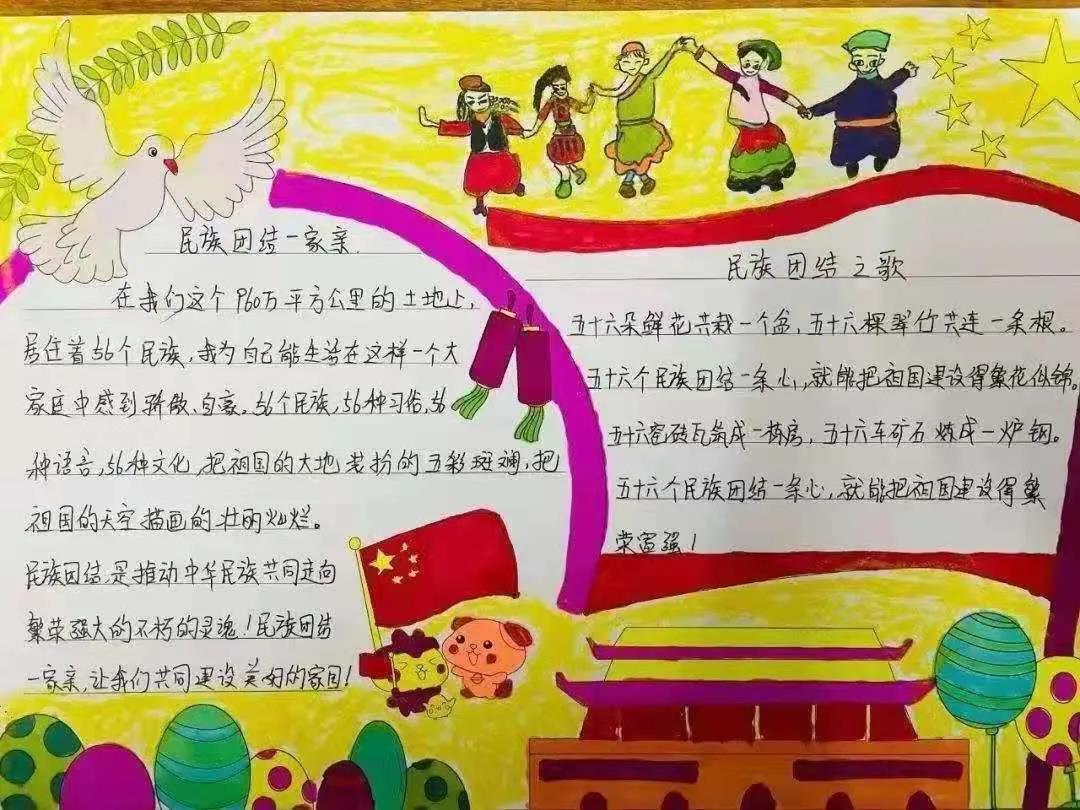 民族团结一家亲.
在我们这个960万平方公里的土地上,
居住着56个民族,我为自己能生活在这样一个大
家庭中感到骄傲、自豪。56个民族,56种习俗,56
种语言,56种文化,把祖国的大地装扮的五彩斑斓,把
祖国的天空描画的壮丽灿烂。
民族团结,是推动中华民族共同走向
繁荣强大的不朽的灵魂!民族团结
一家亲,让我们共同建设美好的家园!
民族团结之歌
五十六朵鲜花共栽一个盆,五十六棵翠竹共连一条根。
五十六个民族团结一条心,就能把祖国建设得繁花似锦。
五十六窑砖瓦筑成一栋房,五十六车矿石炼成一炉钢。
五十六个民族团结一条心,就能把祖国建设得繁
荣富强!